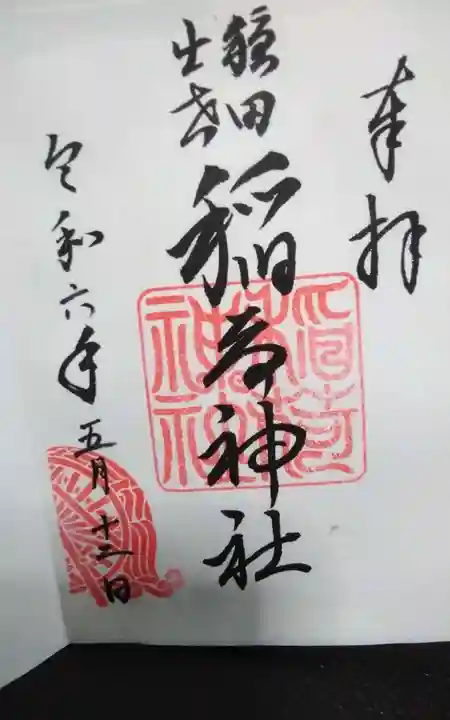 奉拝
出世
稲荷神社
令和六年五月十二日